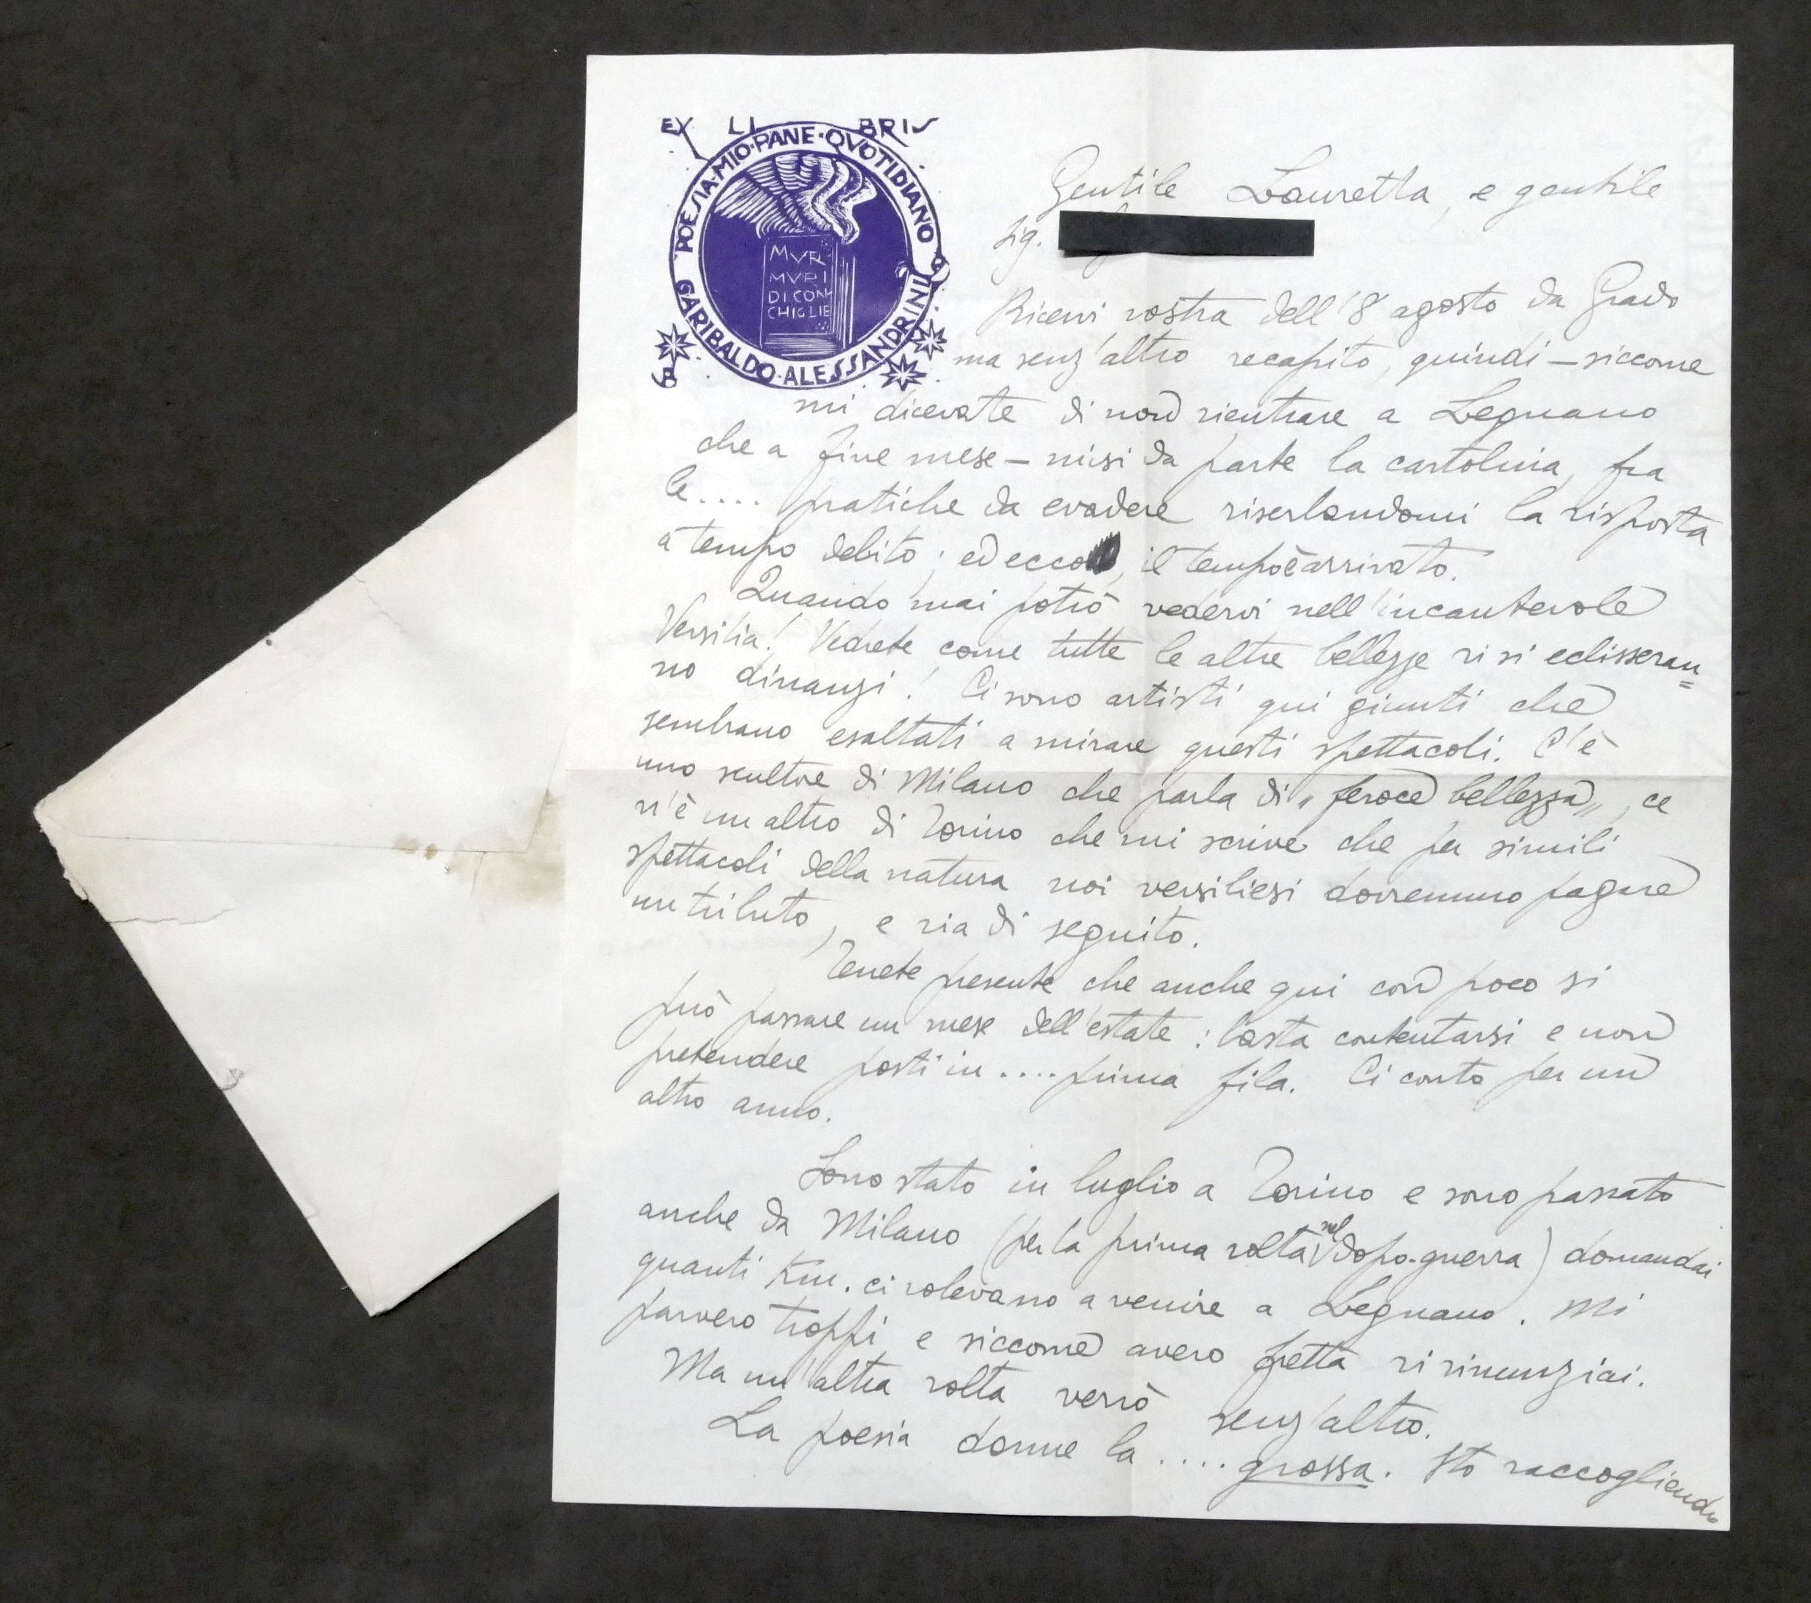 EX LIBRIS
POESIA·MIO·PANE·QVOTIDIANO
GARIBALDO·ALESSANDRINI
MVR
MVRI
DI CON
CHIGLIE
Gentile Lauretta, e gentile
Sig.
Ricevi vostra dell'8 agosto da Grado
ma senz'altro recapito, quindi – siccome
mi dicevate di non rientrare a Legnano
che a fine mese – misi da parte la cartolina, fra
le..... pratiche da evadere riserbandomi la risposta
a tempo debito; ed ecco, il tempo è arrivato.
Quando mai potrò vedervi nell'incantevole
Versilia! Vedrete come tutte le altre bellezze vi si eclisseran=
no dinanzi! Ci sono artisti qui giunti che
sembrano esaltati a mirare questi spettacoli. C'è
uno scultore di Milano che parla di „feroce bellezza„, ce
n'è un altro di Torino che mi scrive che per simili
spettacoli della natura noi versiliesi dovremmo pagare
un tributo, e via di seguito.
Tenete presente che anche qui con poco si
può passare un mese dell'estate: basta contentarsi e non
pretendere posti in .... prima fila. Ci conto per un
altro anno.
Sono stato in luglio a Torino e sono passato
anche da Milano (per la prima volta nel dopo-guerra) domandai
quanti Km. ci volevano a venire a Legnano. Mi
parvero troppi e siccome avevo fretta vi rinunziai.
Ma un'altra volta verrò senz'altro.
La poesia dorme la .... grossa. Sto raccogliendo